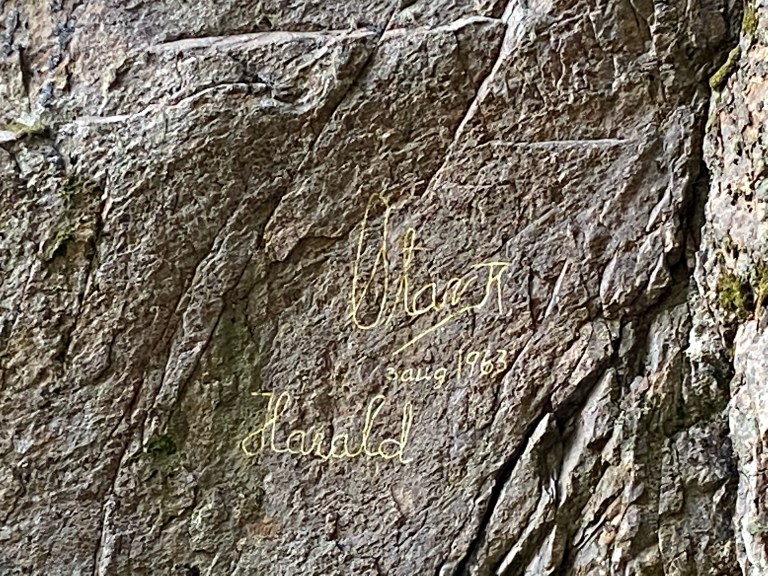 Olav R
3 aug 1963
Harald